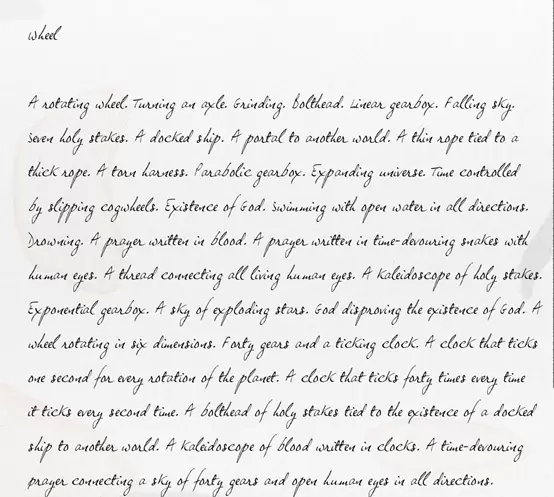 wheel
A rotating wheel. Turning an axle. Grinding. Bolthead. Linear gearbox. Falling sky.
Seven holy stakes. A docked ship. A portal to another world. A thin rope tied to a
thick rope. A torn harness. Parabolic gearbox. Expanding universe. Time controlled
by slipping cogwheels. Existence of God. Swimming with open water in all directions.
Drowning. A prayer written in blood. A prayer written in time-devouring snakes with
human eyes. A thread connecting all living human eyes. A kaleidoscope of holy stakes.
Exponential gearbox. A sky of exploding stars. God disproving the existence of God. A
wheel rotating in six dimensions. Forty gears and a ticking clock. A clock that ticks
one second for every rotation of the planet. A clock that ticks forty times every time
it ticks every second time. A bolthead of holy stakes tied to the existence of a docked
ship to another world. A kaleidoscope of blood written in clocks. A time-devouring
prayer connecting a sky of forty gears and open human eyes in all directions.